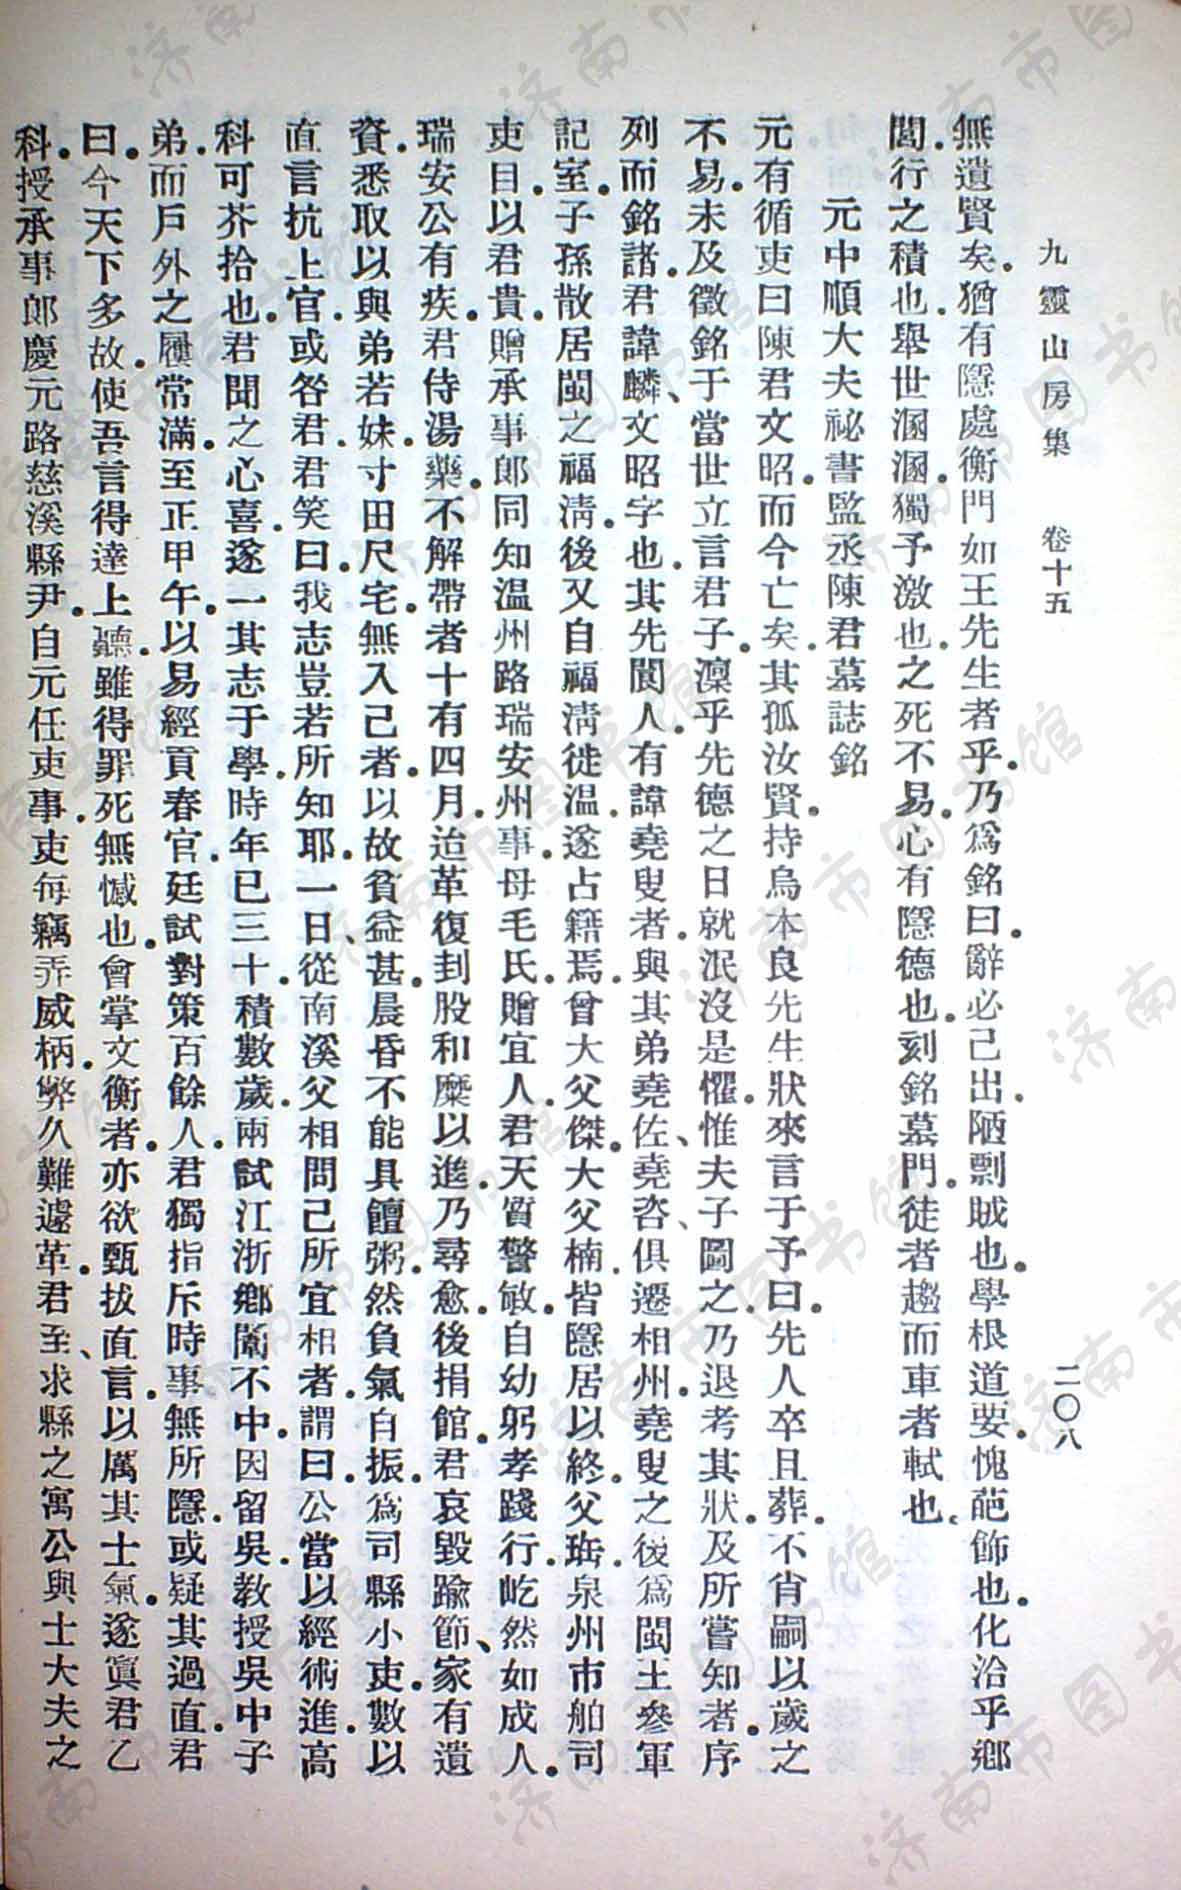 九靈山房集 卷十五 二〇八
無遺賢矣。猶有隱處衡門如王先生者乎。乃爲銘曰。辭必己出。陋剽賊也。學根道要。愧葩飾也。化洽乎鄉
閭。行之積也。舉世溷溷。獨予激也。之死不易。心有隱德也。刻銘墓門。徒者趨而車者軾也。
元中順大夫祕書監丞陳君墓誌銘
元有循吏曰陳君文昭。而今亡矣。其孤汝賢。持烏本良先生狀來言于予曰。先人卒且葬。不肖嗣以歲之
不易。未及徵銘于當世立言君子。凜乎先德之日就泯沒是懼。惟夫子圖之。乃退考其狀。及所嘗知者。序
列而銘諸。君諱麟、文昭字也。其先閩人。有諱堯叟者。與其弟堯佐、堯咨、俱遷相州。堯叟之後爲閩土參軍
記室。子孫散居閩之福淸。後又自福淸徙温。遂占籍焉。曾大父傑。大父楠。皆隱居以終。父珤。泉州市舶司
吏目。以君貴。贈承事郎同知温州路瑞安州事。母毛氏。贈宜人。君天質警敏。自幼躬孝踐行。屹然如成人。
瑞安公有疾。君侍湯藥。不解帶者十有四月。治革。復刲股和糜以進。乃尋愈。後捐館。君哀毀踰節、家有遺
資。悉取以與弟若妹。寸田尺宅。無入己者。以故貧益甚。晨昏不能具饘粥。然負氣自振。爲司縣小吏。數以
直言抗上官。或咎君。君笑曰。我志豈若所知耶。一日、從南溪父相問己所宜。相者謂曰。公當以經術進。高
科可芥拾也。君聞之心喜。遂一其志于學。時年已三十。積數歲。兩試江浙鄉闈不中。因留吳。敎授吳中子
弟。而戶外之履常滿。至正甲午。以易經貢春官。廷試對策百餘人。君獨指斥時事無所隱。或疑其過直。君
曰。今天下多故。使吾言得達上聽。雖得罪死無憾也。會掌文衡者。亦欲甄拔直言。以厲其士氣。遂寘君乙
科。授承事郎慶元路慈溪縣尹。自元任吏事。吏每竊弄威柄。弊久難遽革。君至、求縣之寓公與士大夫之